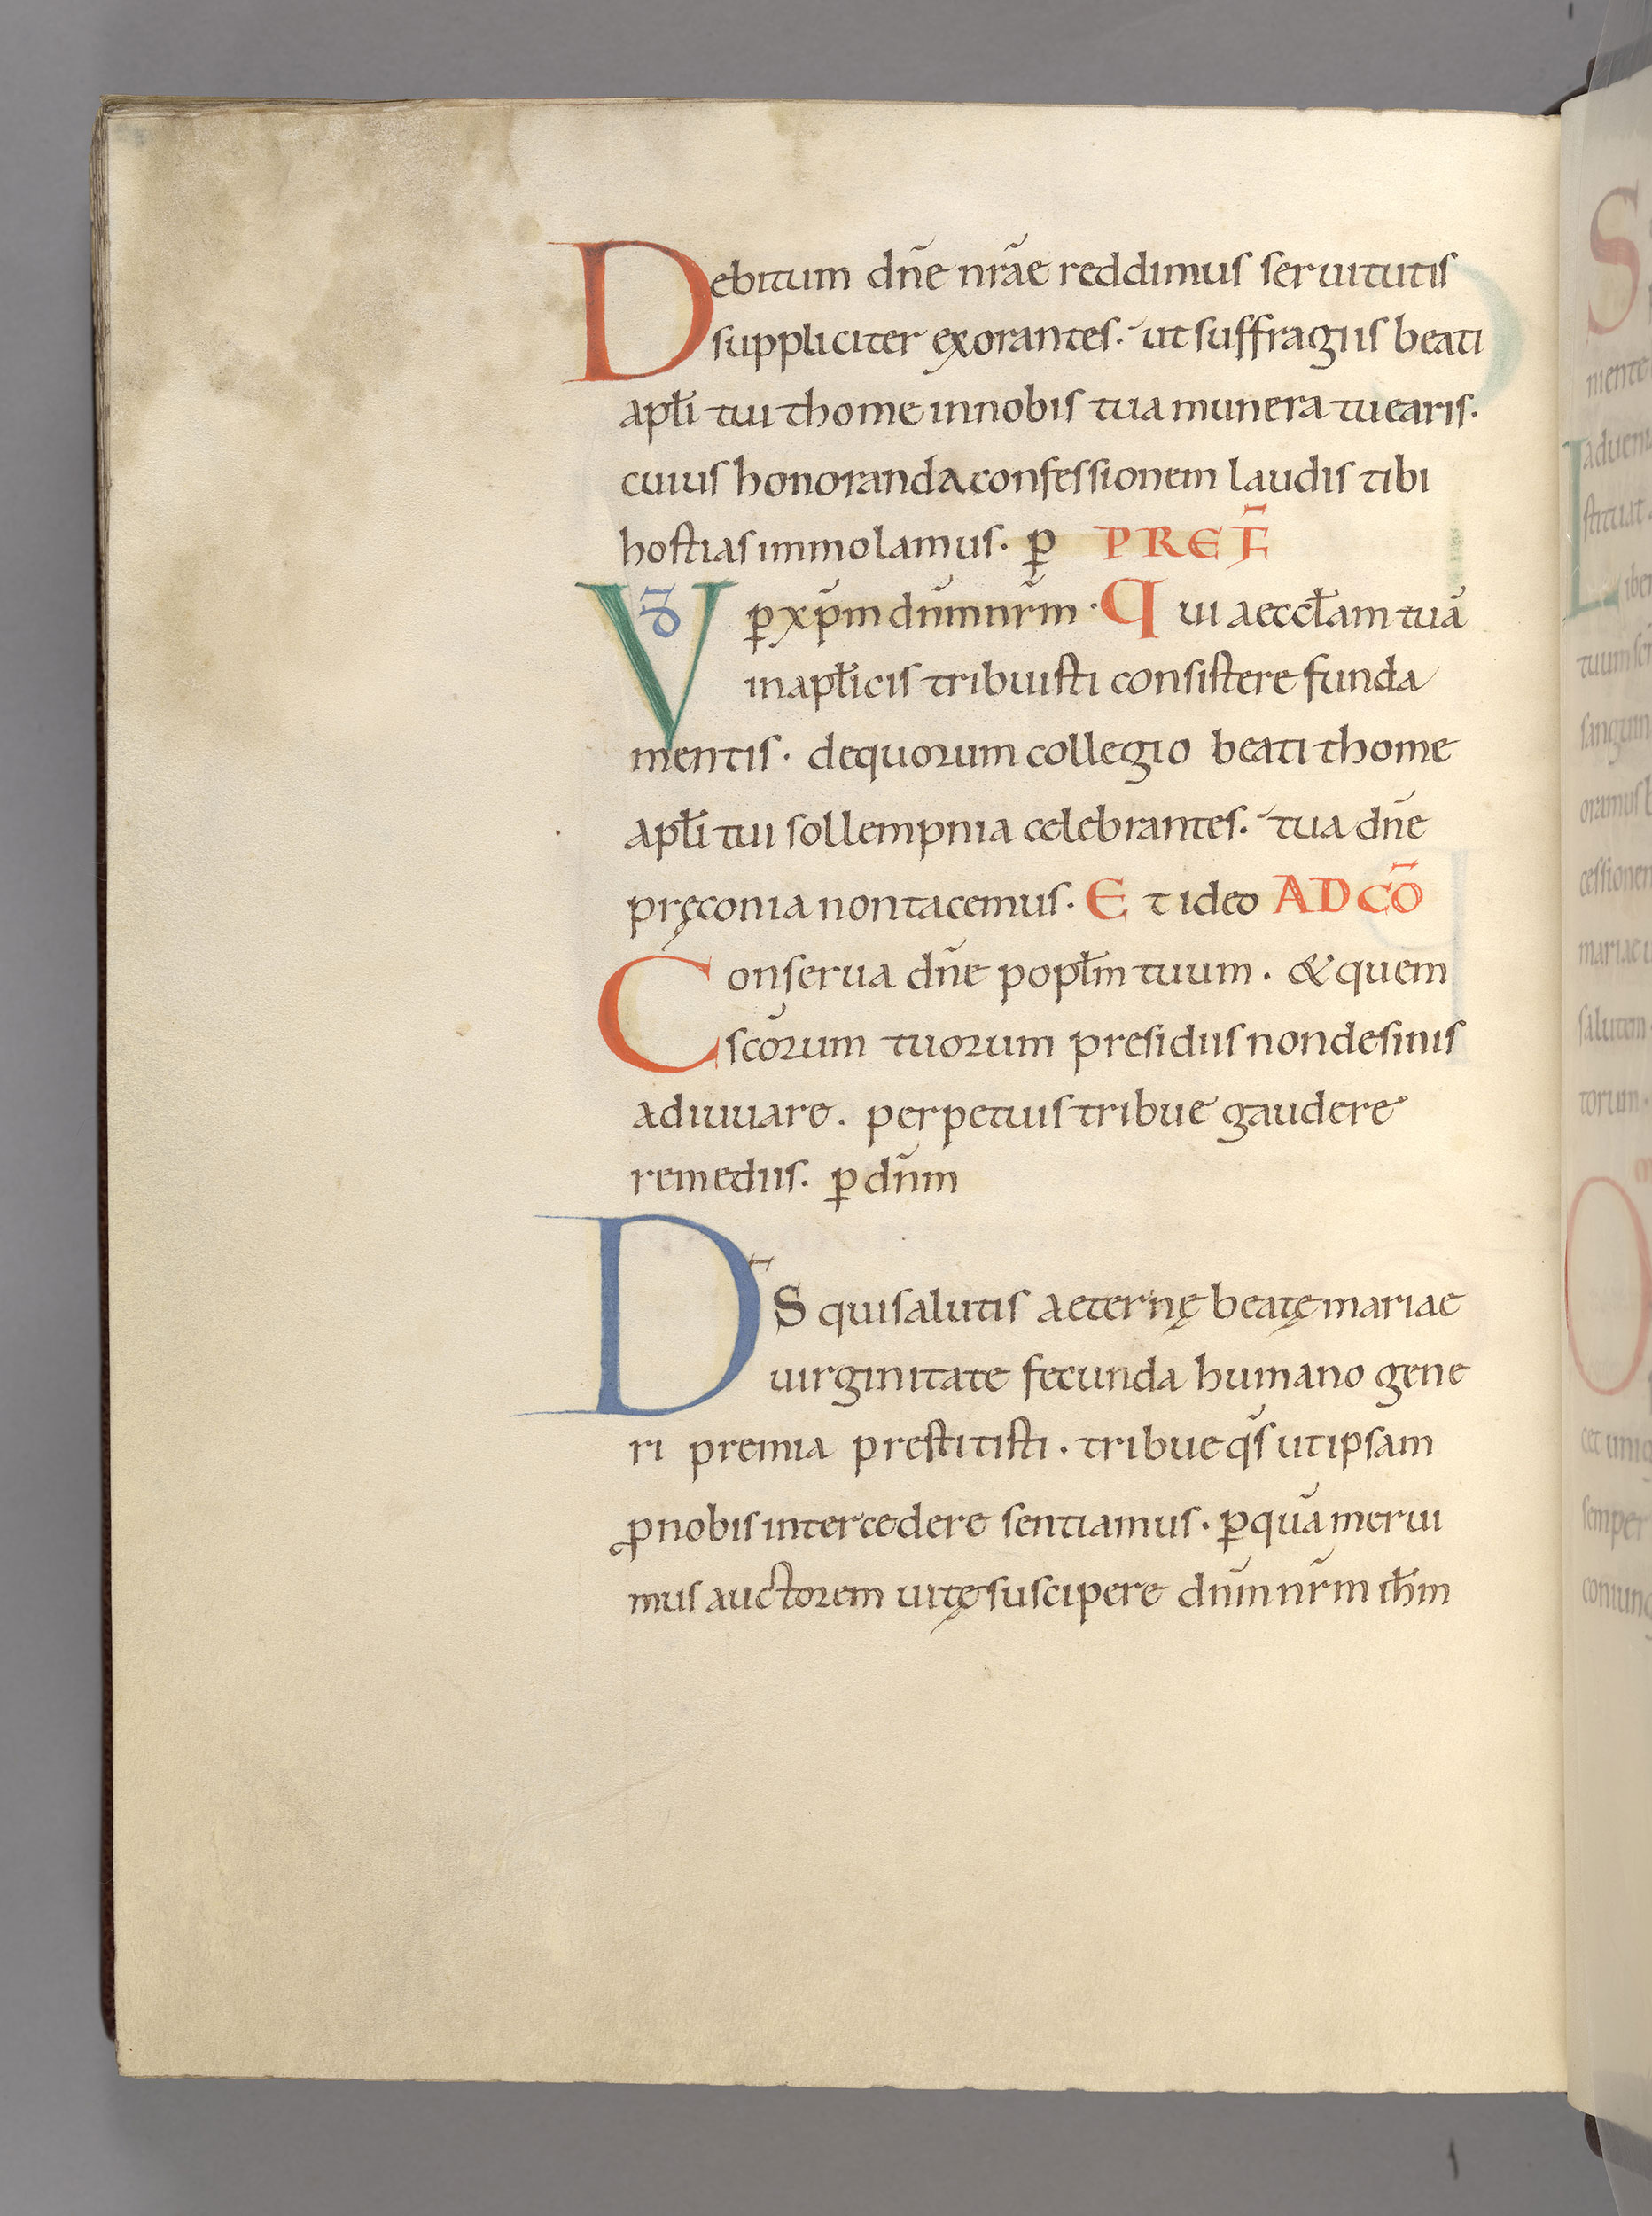 Debitum dñe nrãe reddimus seruitutis
suppliciter exorantes. ut suffragiis beati
apłi tui thome in nobis tua munera tuearis.
cuius honoranda confessionem laudis tibi
hostias immolamus. p̲ PREF̃
VD p̲ xp̄m dñm nr̃m. Qui aeccłam tuā
in apłicis tribuisti consistere funda
mentis. de quorum collegio beati thome
apłi tui sollempnia celebrantes. tua dñe
pręconia non tacemus. Et ideo AD CŌ
Conserua dñe popłm tuum. & quem
scōrum tuorum presidiis non desinis
adiuuare. perpetuis tribue gaudere
remediis. p̲ dñm
D̄S qui salutis aeternę beatę mariae
uirginitate fecunda humano gene
ri premia prestitisti. tribue q̄s ut ipsam
ꝓ nobis intercedere sentiamus. p̲ quā merui
mus auctorem uitę suscipere dñm nr̃m ih̄m